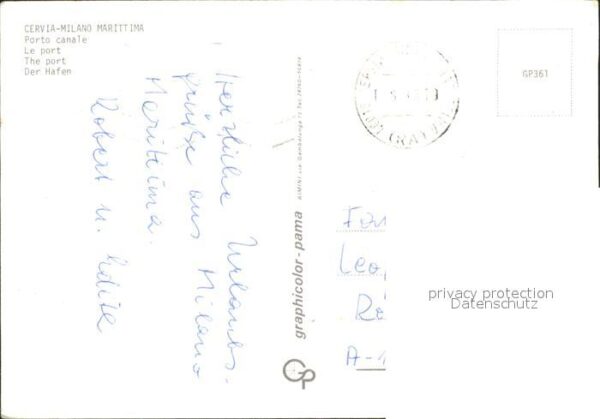 CERVIA-MILANO MARITTIMA
Porto canale
Le port
The port
Der Hafen
Herzliche Urlaubs-
grüße aus Milano
Marittima.
Robert u. Edith
graphicolor-pama
GP
GP361
Leo
A-
privacy protection
Datenschutz